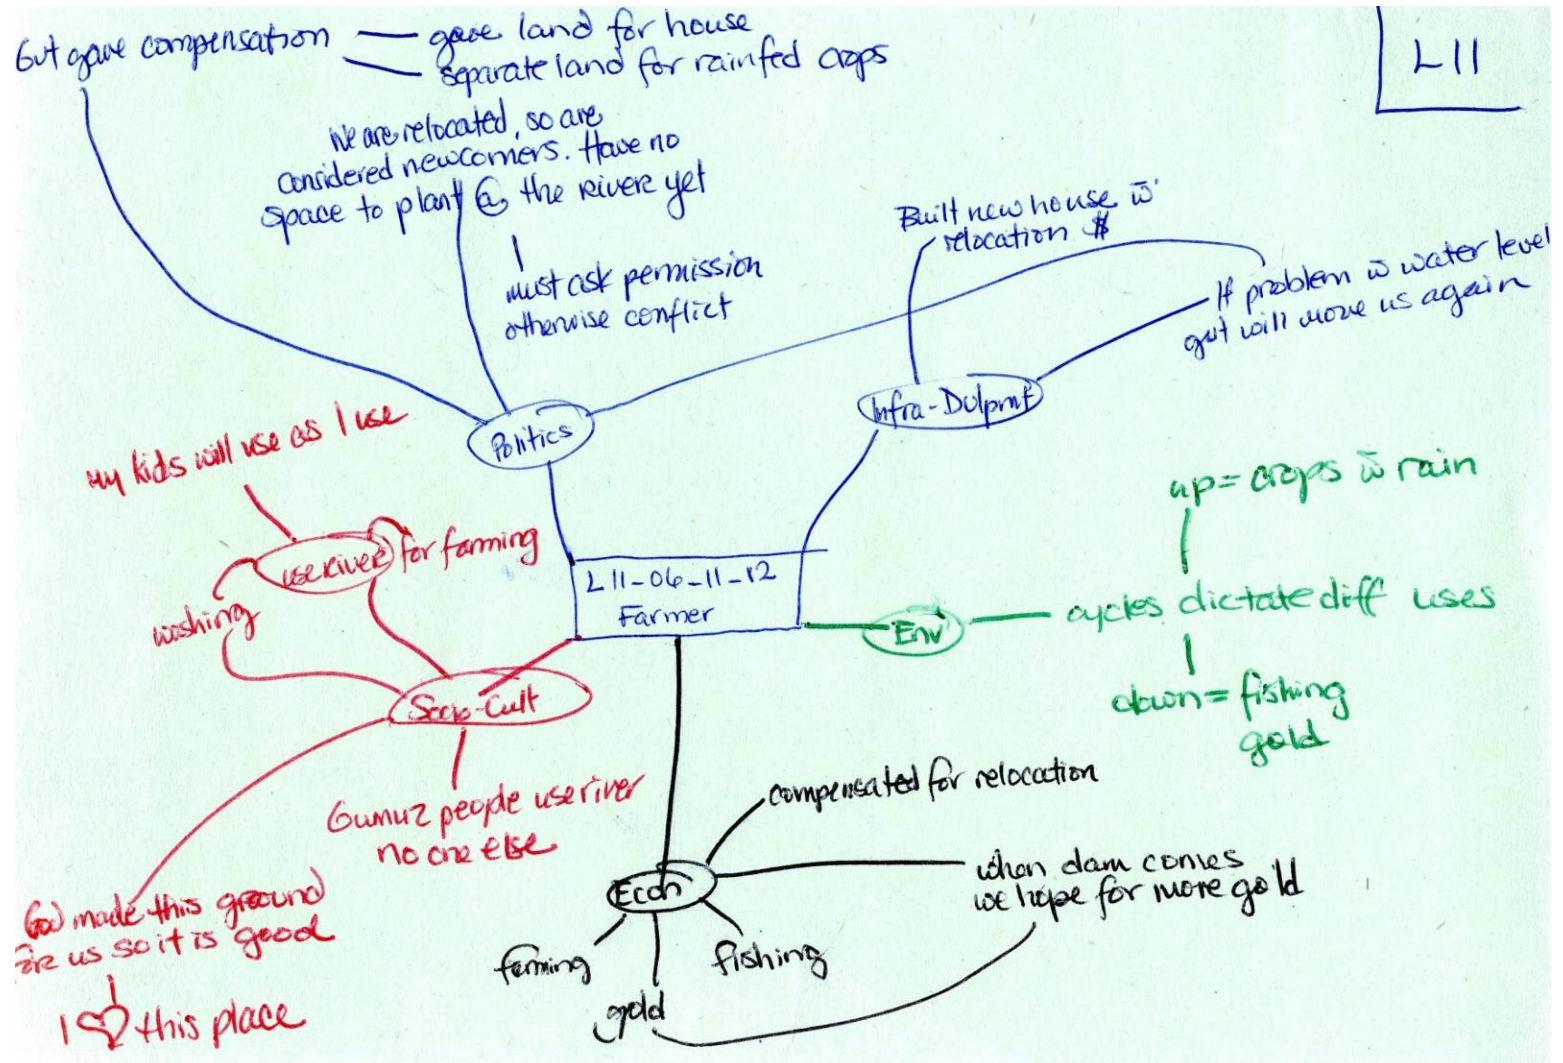 L11
Gvt gave compensation
gave land for house
separate land for rainfed crops
We are relocated, so are
considered newcomers. Have no
space to plant @ the river yet
must ask permission
otherwise conflict
Built new house w̄
relocation $
If problem w̄ water level
gvt will move us again
Politics
Infra-Dvlpmt
My kids will use as I use
use river
for farming
washing
L11-06-11-12
Farmer
Env
up = crops w̄ rain
cycles dictate diff uses
down = fishing
gold
Socio-Cult
Gumuz people use river
no one else
God made this ground
for us so it is good
I ♡ this place
Econ
compensated for relocation
when dam comes
we hope for more gold
farming
gold
fishing